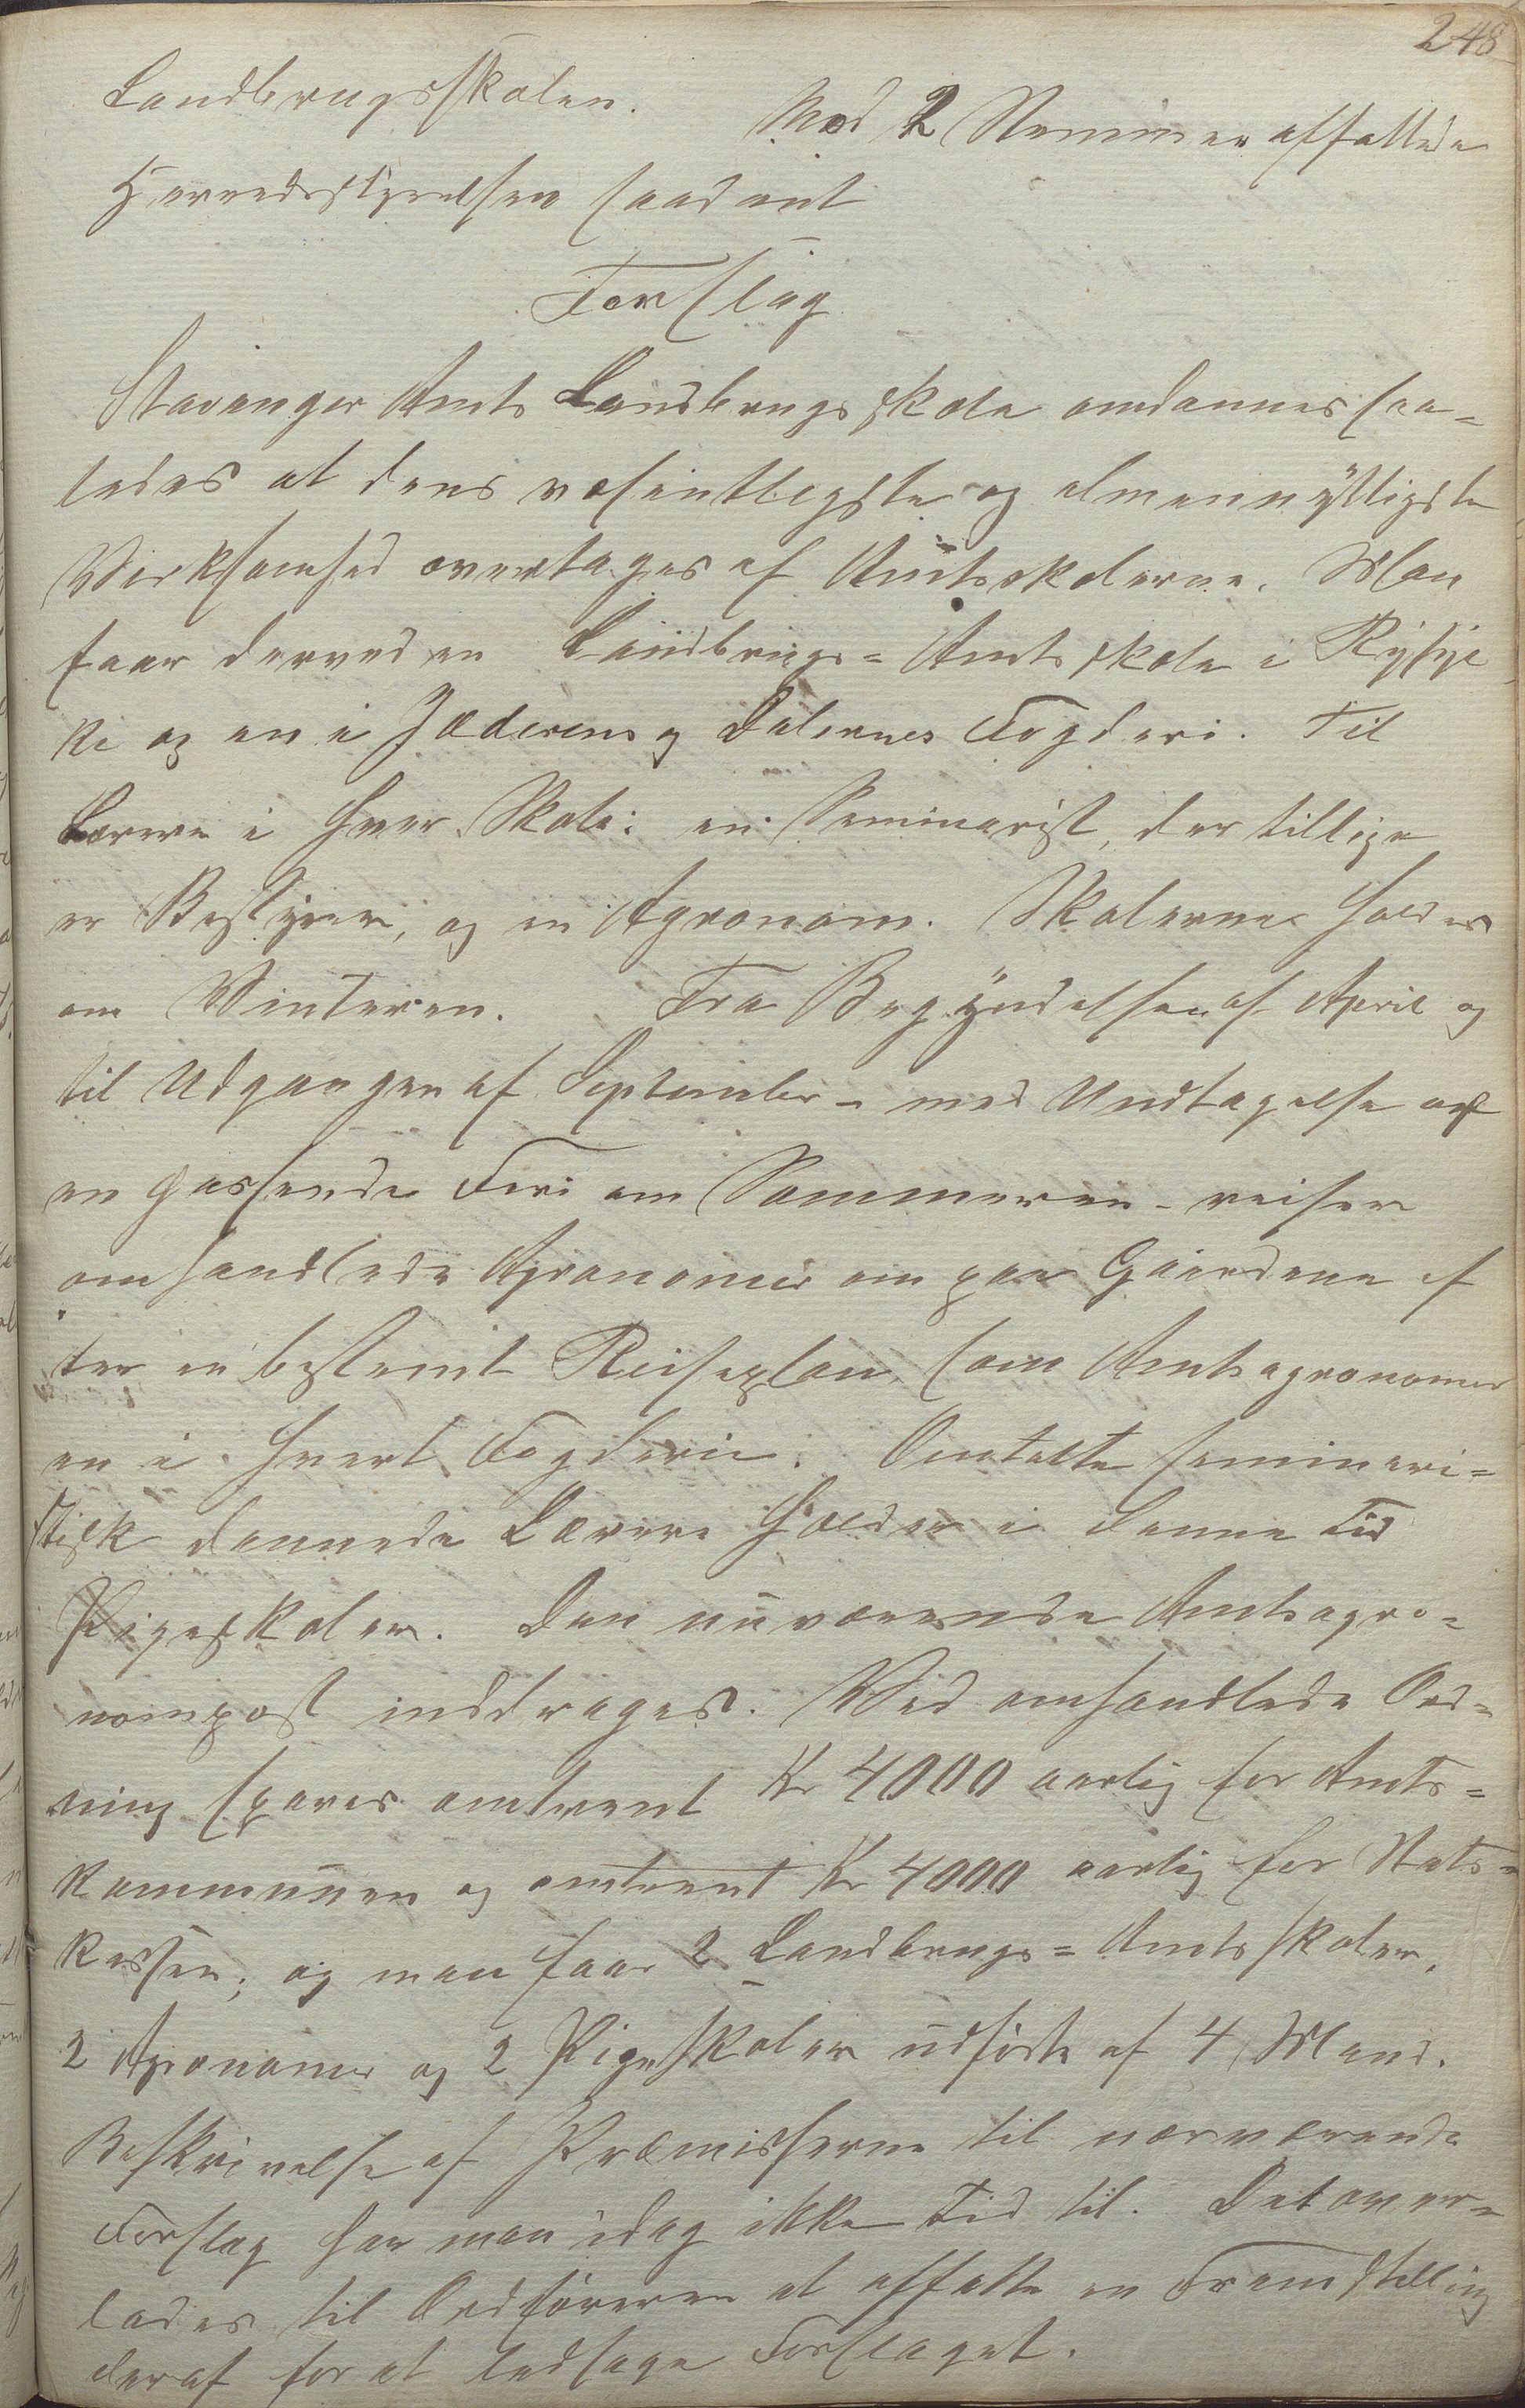 248
Landbrugsskolen. Mod 2 Stemmer affattede
Herredsstyrelsen saadant
Forslag
Stavanger Amts Landbrugsskole omdannes saa-
ledes at dens væsentligste og almennyttigste
Virksomhed overtages af Amtsskolerne. Man
faar derved en Landbrugs=Amtsskole i Ryfyl
ke og en i Jæderens og Dalernes Fogderi. Til
Lærere i hver Skole: en Seminarist, der tillige
er Bestyrer, og en Agronom. Skolerne holdes
om Vinteren. Fra Begyndelsen af April og
til Udgangen af September – med Undtagelse af
en passende Ferie om Sommeren – reiser
omhandlede Agronomer om paa Gaardene ef
ter en bestemt Reiseplan, som Amtsagronomer
en i hvert Fogderie. Omtalte seminari=
stisk dannede Lærere holder i denne Tid
Pigeskoler. Den nuværende Amtsagro=
nompost inddrages. Ved omhandlede Ord=
ning spares omtrent Kr 4000 aarlig for Amts=
kommunen og omtrent Kr 4000 aarlig for Stats=
kassen; og man faar 2 Landbrugs=Amtsskoler,
2 Agronomer og 2 Pigeskoler udførte af 4 Mand.
Beskrivelse af Præmisserne til nærværende
Forslag har man idag ikke Tid til. Det over=
lades til Ordføreren at affatte en Fremstilling
deraf for at ledsage Forslaget.